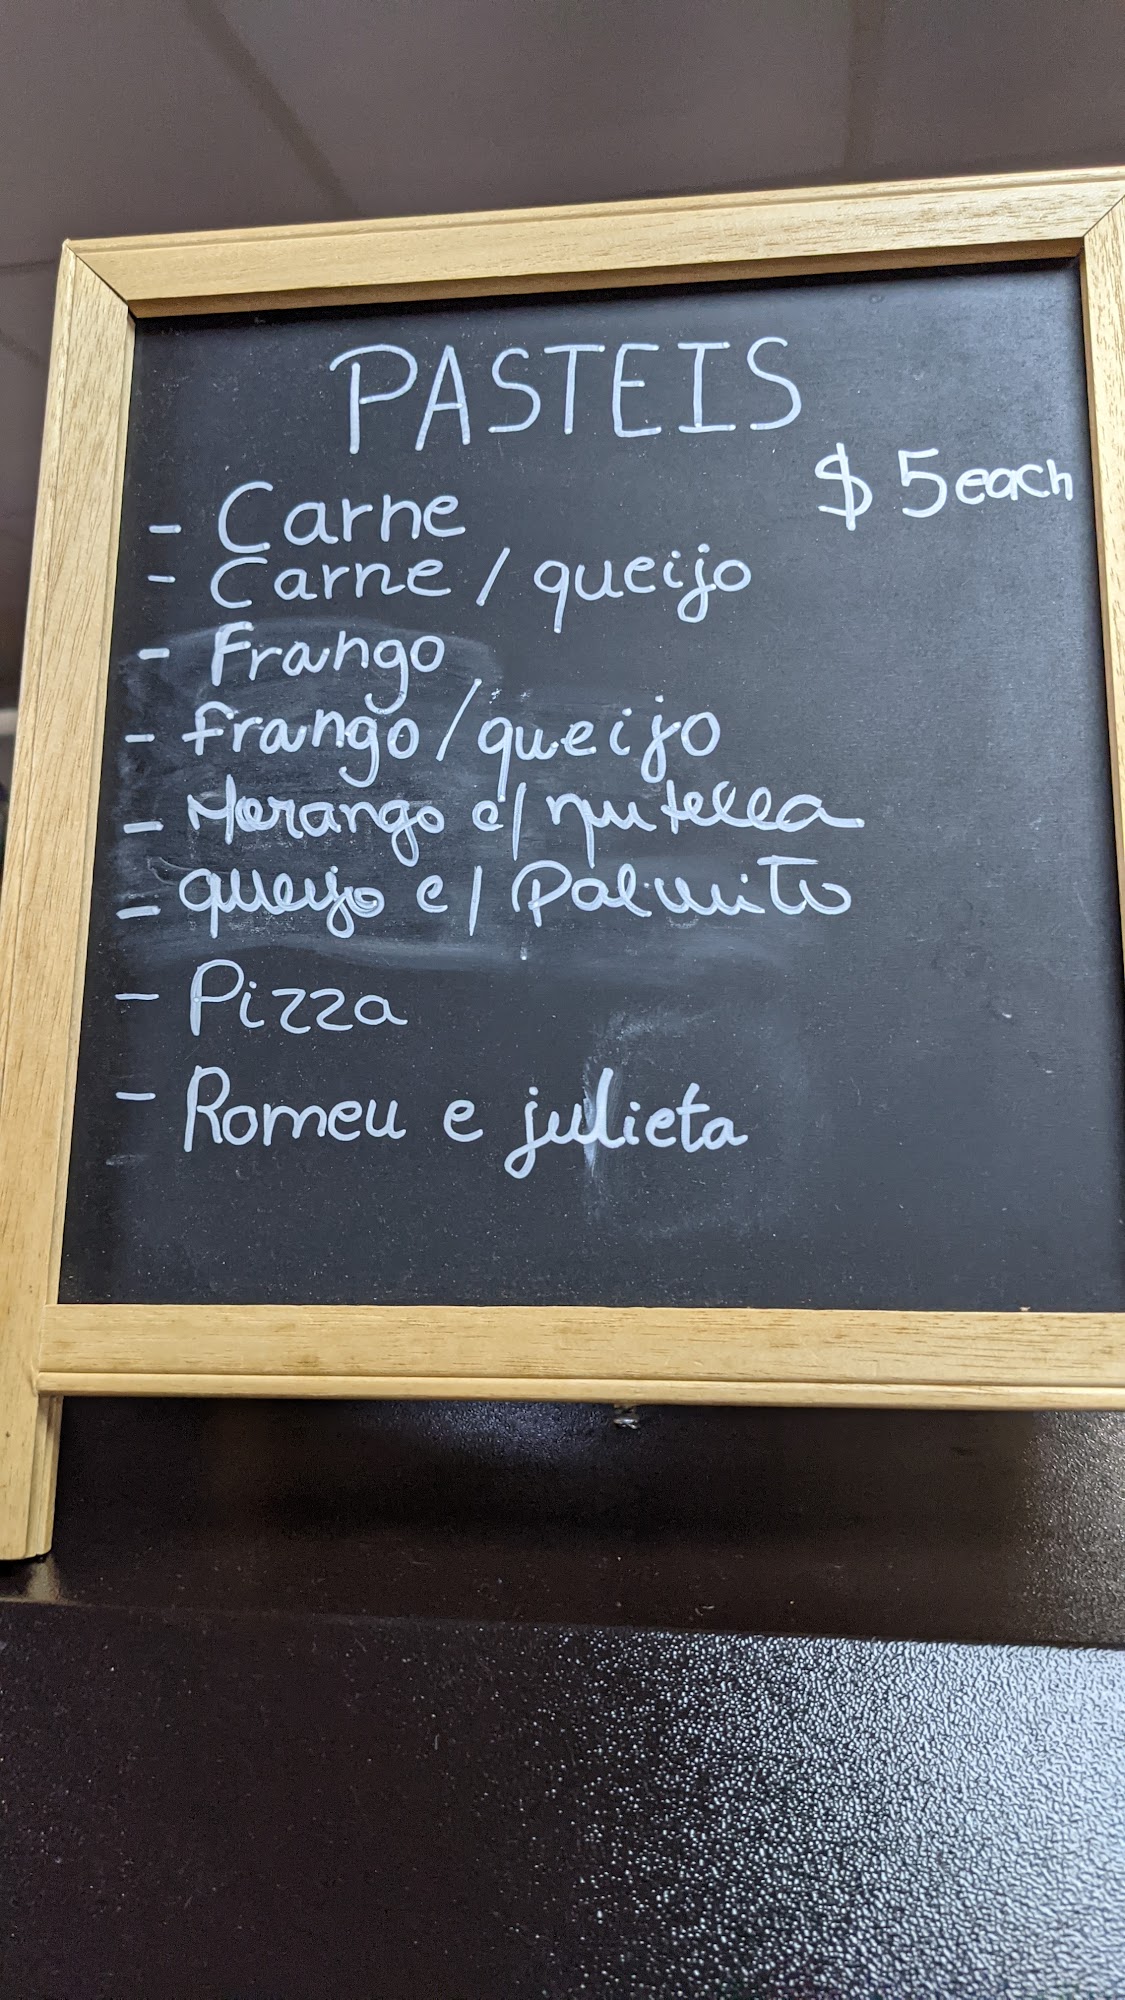 PASTEIS
$5 each
- Carne
- Carne / queijo
- Frango
- frango / queijo
- Morango c/ nutella
- queijo c/ Palmito
- Pizza
- Romeu e julieta